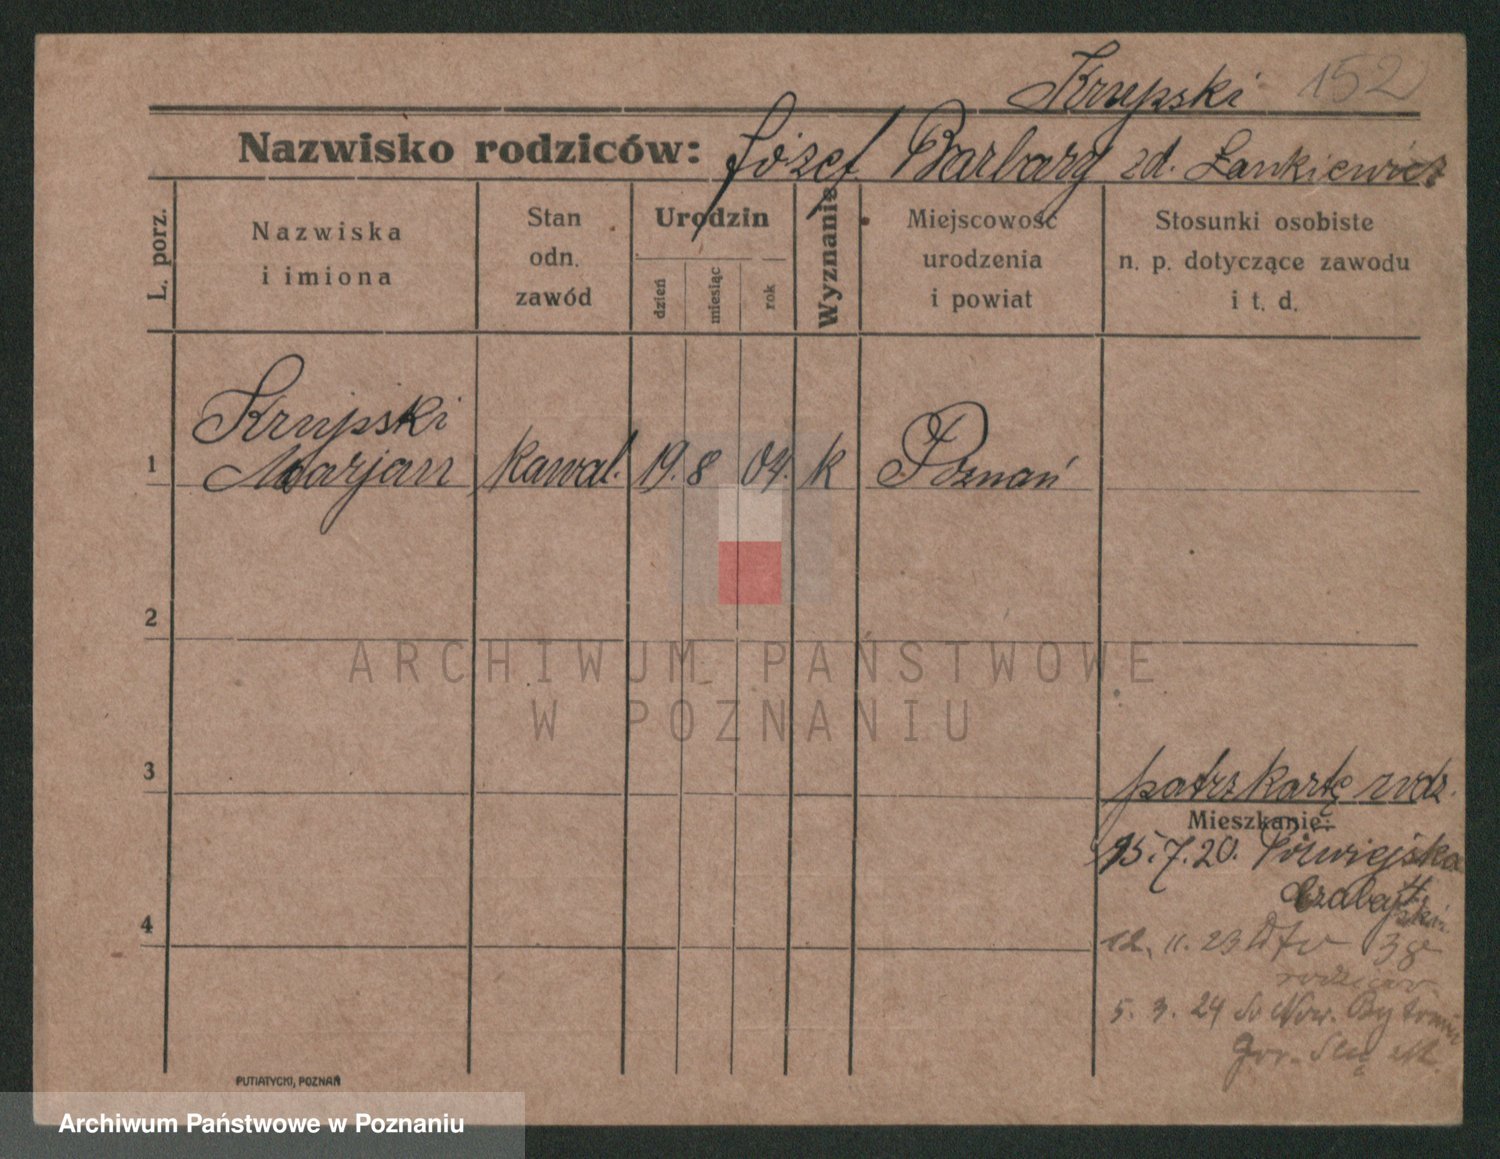 Krupski 152
Nazwisko rodziców: Józef Barbary zd. Łankiewicz
L. porz.
Nazwiska
i imiona
Stan
odn.
zawód
Urodzin
dzień
miesiąc
rok
Wyznanie
Miejscowość
urodzenia
i powiat
Stosunki osobiste
n. p. dotyczące zawodu
i t. d.
Krupski
1 Marjan kawal. 19. 8 04. k Poznań
2
ARCHIWUM PAŃSTWOWE
W POZNANIU
3
patrz kartę rodz.
Mieszkanie:
15.7.20. Półwiejska
4
12. 11. 23
rodziców
5. 3. 24 Now. Bytomia
PUTIATYCKI, POZNAŃ
Archiwum Państwowe w Poznaniu